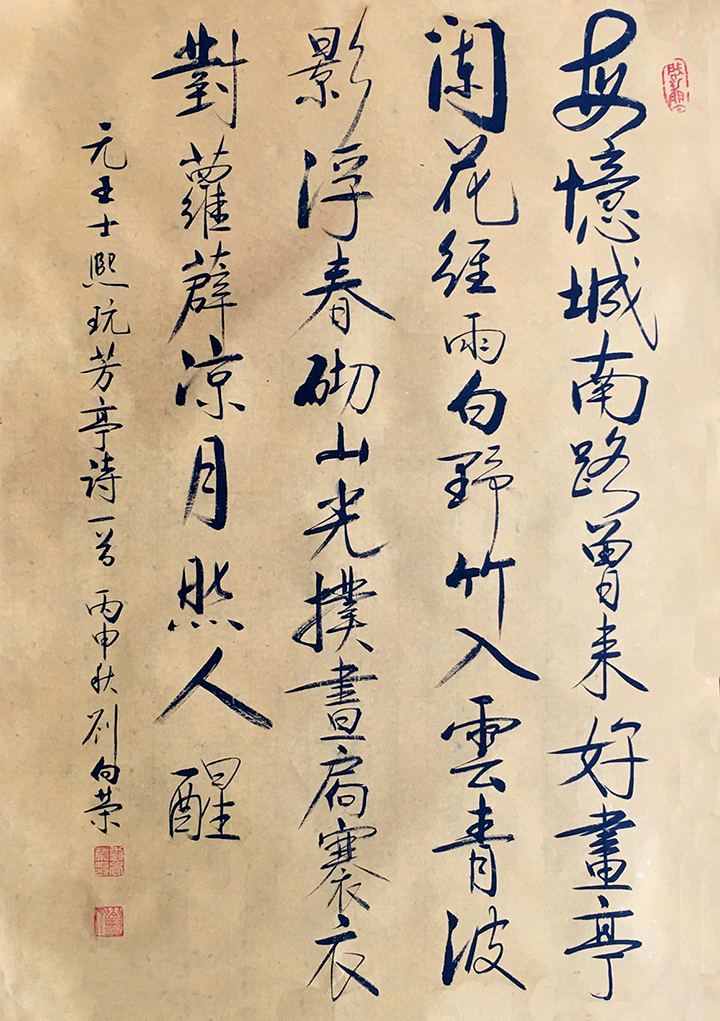 每憶城南路曾来好畫亭
闌花經雨白野竹入雲青波
影浮春砌山光撲晝扃褰衣
對蘿薜凉月照人醒
元王士熙玩芳亭詩一首 丙申秋 劉向荣